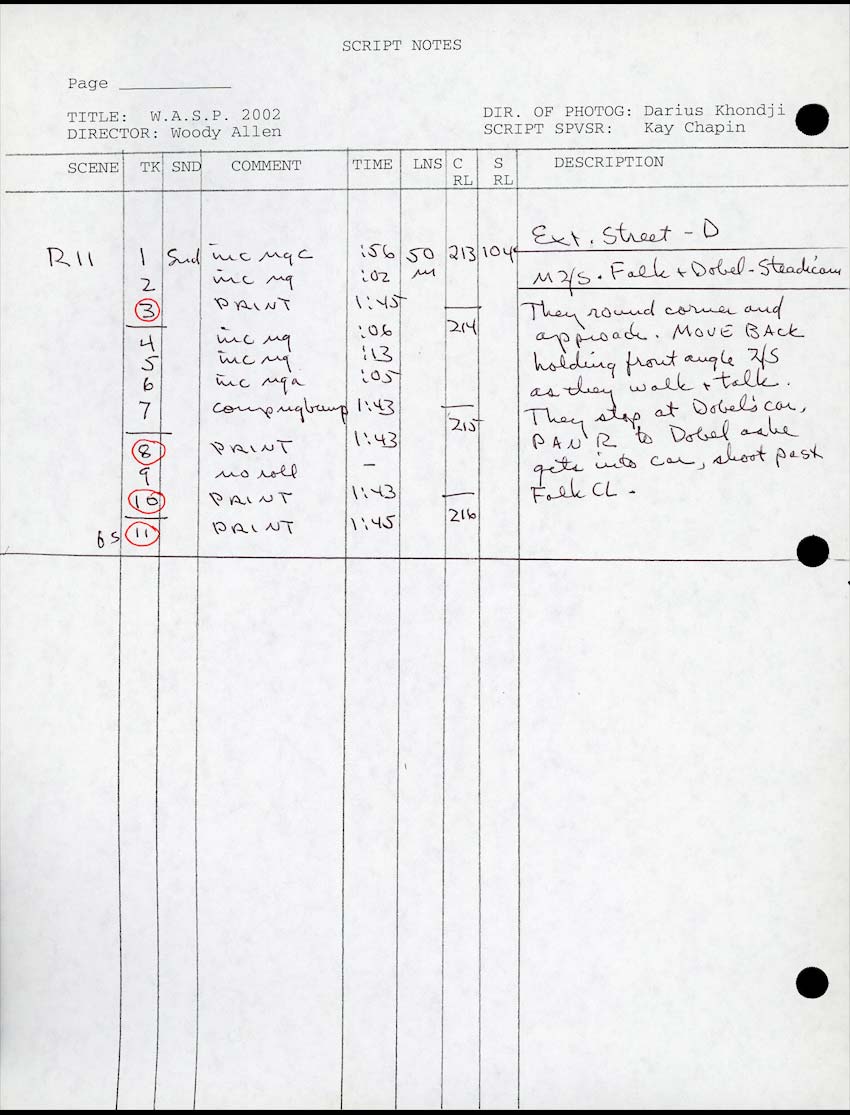 SCRIPT NOTES
Page
TITLE: W.A.S.P. 2002
DIRECTOR: Woody Allen
DIR. OF PHOTOG: Darius Khondji
SCRIPT SPVSR: Kay Chapin
SCENE TK SND COMMENT TIME LNS C RL S RL DESCRIPTION
Ext. Street - D
R11 1 Snd inc ngc :56 50 213 104
M2/S. Falk + Dobel - Steadicam
2 inc ng :02 m
3 PRINT 1:45
They round corner and
4 inc ng :06 214
approach. MOVE BACK
5 inc ng :13
holding front angle 2/S
6 inc nga :05
as they walk + talk.
7 comp 1:43
They stop at Dobel's car,
8 PRINT 1:43 215
PAN R to Dobel as he
9 no roll -
gets into car, shoot past
10 PRINT 1:43
Falk CL.
11 PRINT 1:45 216